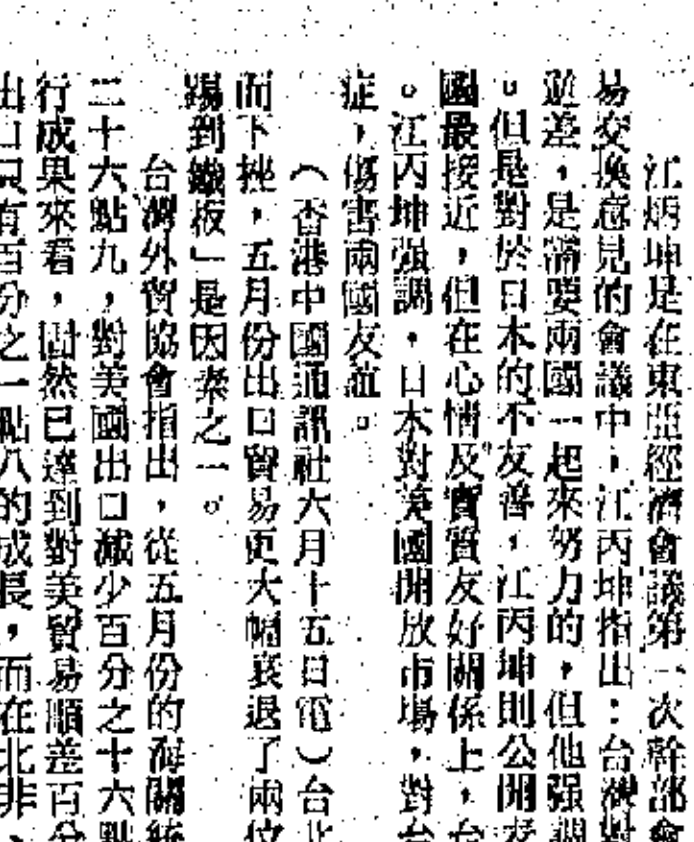 江炳坤是在東亞經濟會議第一次幹部會
易交換意見的會議中，江丙坤指出：台灣對
逆差，是需要兩國一起來努力的，但他强調
。但是對於日本的不友善，江丙坤則公開表
國最接近，但在心情及實質友好關係上，台
。江丙坤强調，日本對美國開放市場，對台
症，傷害兩國友誼。
（香港中國通訊社六月十五日電）台北
而下挫，五月份出口貿易更大幅衰退了兩位
踢到鐵板」是因素之一。
台灣外貿協會指出，從五月份的海關統
二十六點九，對美國出口減少百分之十六點
行成果來看，固然已達到對美貿易順差百分
出口只有百分之一點八的成長，而在北非、